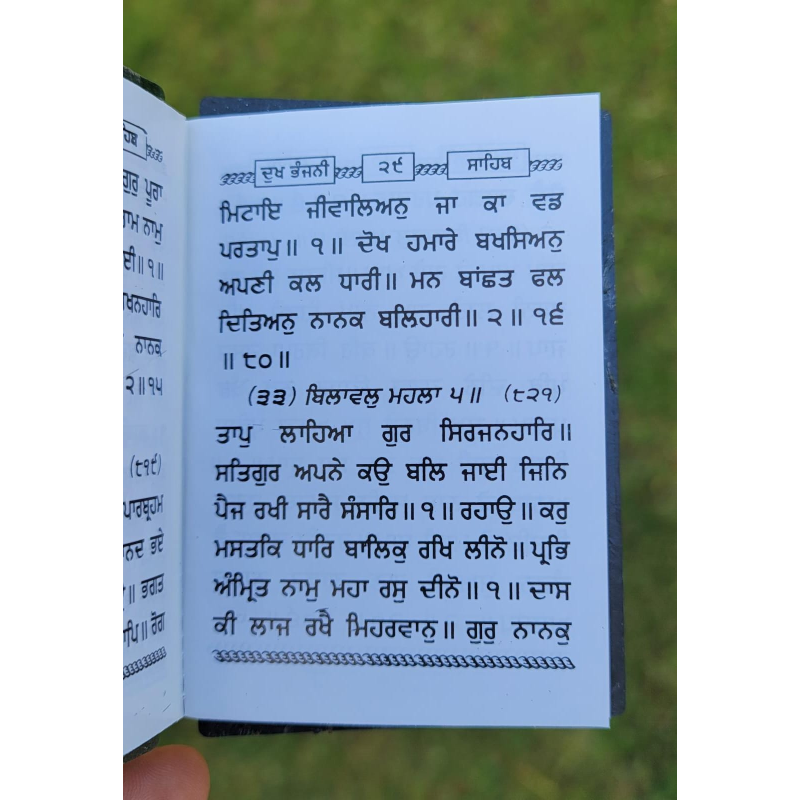 ਹਿਬ
ਗੁਰੁ ਪੂਰਾ
ਾਮ ਨਾਮੁ
ਈ॥੧॥
ਖਨਹਾਰਿ
ਨਾਨਕ
੨॥੧੫
(੮੧੯)
ਪਾਰਬ੍ਰਹਮ
ਨਦ ਭਏ
॥ ਭਗਤ
ਪਿ॥ ਰੋਗ
ਦੁਖ ਭੰਜਨੀ ੨੯ ਸਾਹਿਬ
ਮਿਟਾਇ ਜੀਵਾਲਿਅਨੁ ਜਾ ਕਾ ਵਡ
ਪਰਤਾਪੁ॥ ੧॥ ਦੋਖ ਹਮਾਰੇ ਬਖਸਿਅਨੁ
ਅਪਣੀ ਕਲ ਧਾਰੀ॥ ਮਨ ਬਾਂਛਤ ਫਲ
ਦਿਤਿਅਨੁ ਨਾਨਕ ਬਲਿਹਾਰੀ॥ ੨॥ ੧੬
॥ ੮੦॥
(੩੩) ਬਿਲਾਵਲੁ ਮਹਲਾ ੫॥ (੮੨੧)
ਤਾਪੁ ਲਾਹਿਆ ਗੁਰ ਸਿਰਜਨਹਾਰਿ॥
ਸਤਿਗੁਰ ਅਪਨੇ ਕਉ ਬਲਿ ਜਾਈ ਜਿਨਿ
ਪੈਜ ਰਖੀ ਸਾਰੈ ਸੰਸਾਰਿ॥੧॥ ਰਹਾਉ॥ ਕਰੁ
ਮਸਤਕਿ ਧਾਰਿ ਬਾਲਿਕੁ ਰਖਿ ਲੀਨੋ॥ ਪ੍ਰਭਿ
ਅੰਮ੍ਰਿਤ ਨਾਮੁ ਮਹਾ ਰਸੁ ਦੀਨੋ॥ ੧॥ ਦਾਸ
ਕੀ ਲਾਜ ਰਖੈ ਮਿਹਰਵਾਨੁ॥ ਗੁਰੁ ਨਾਨਕੁ